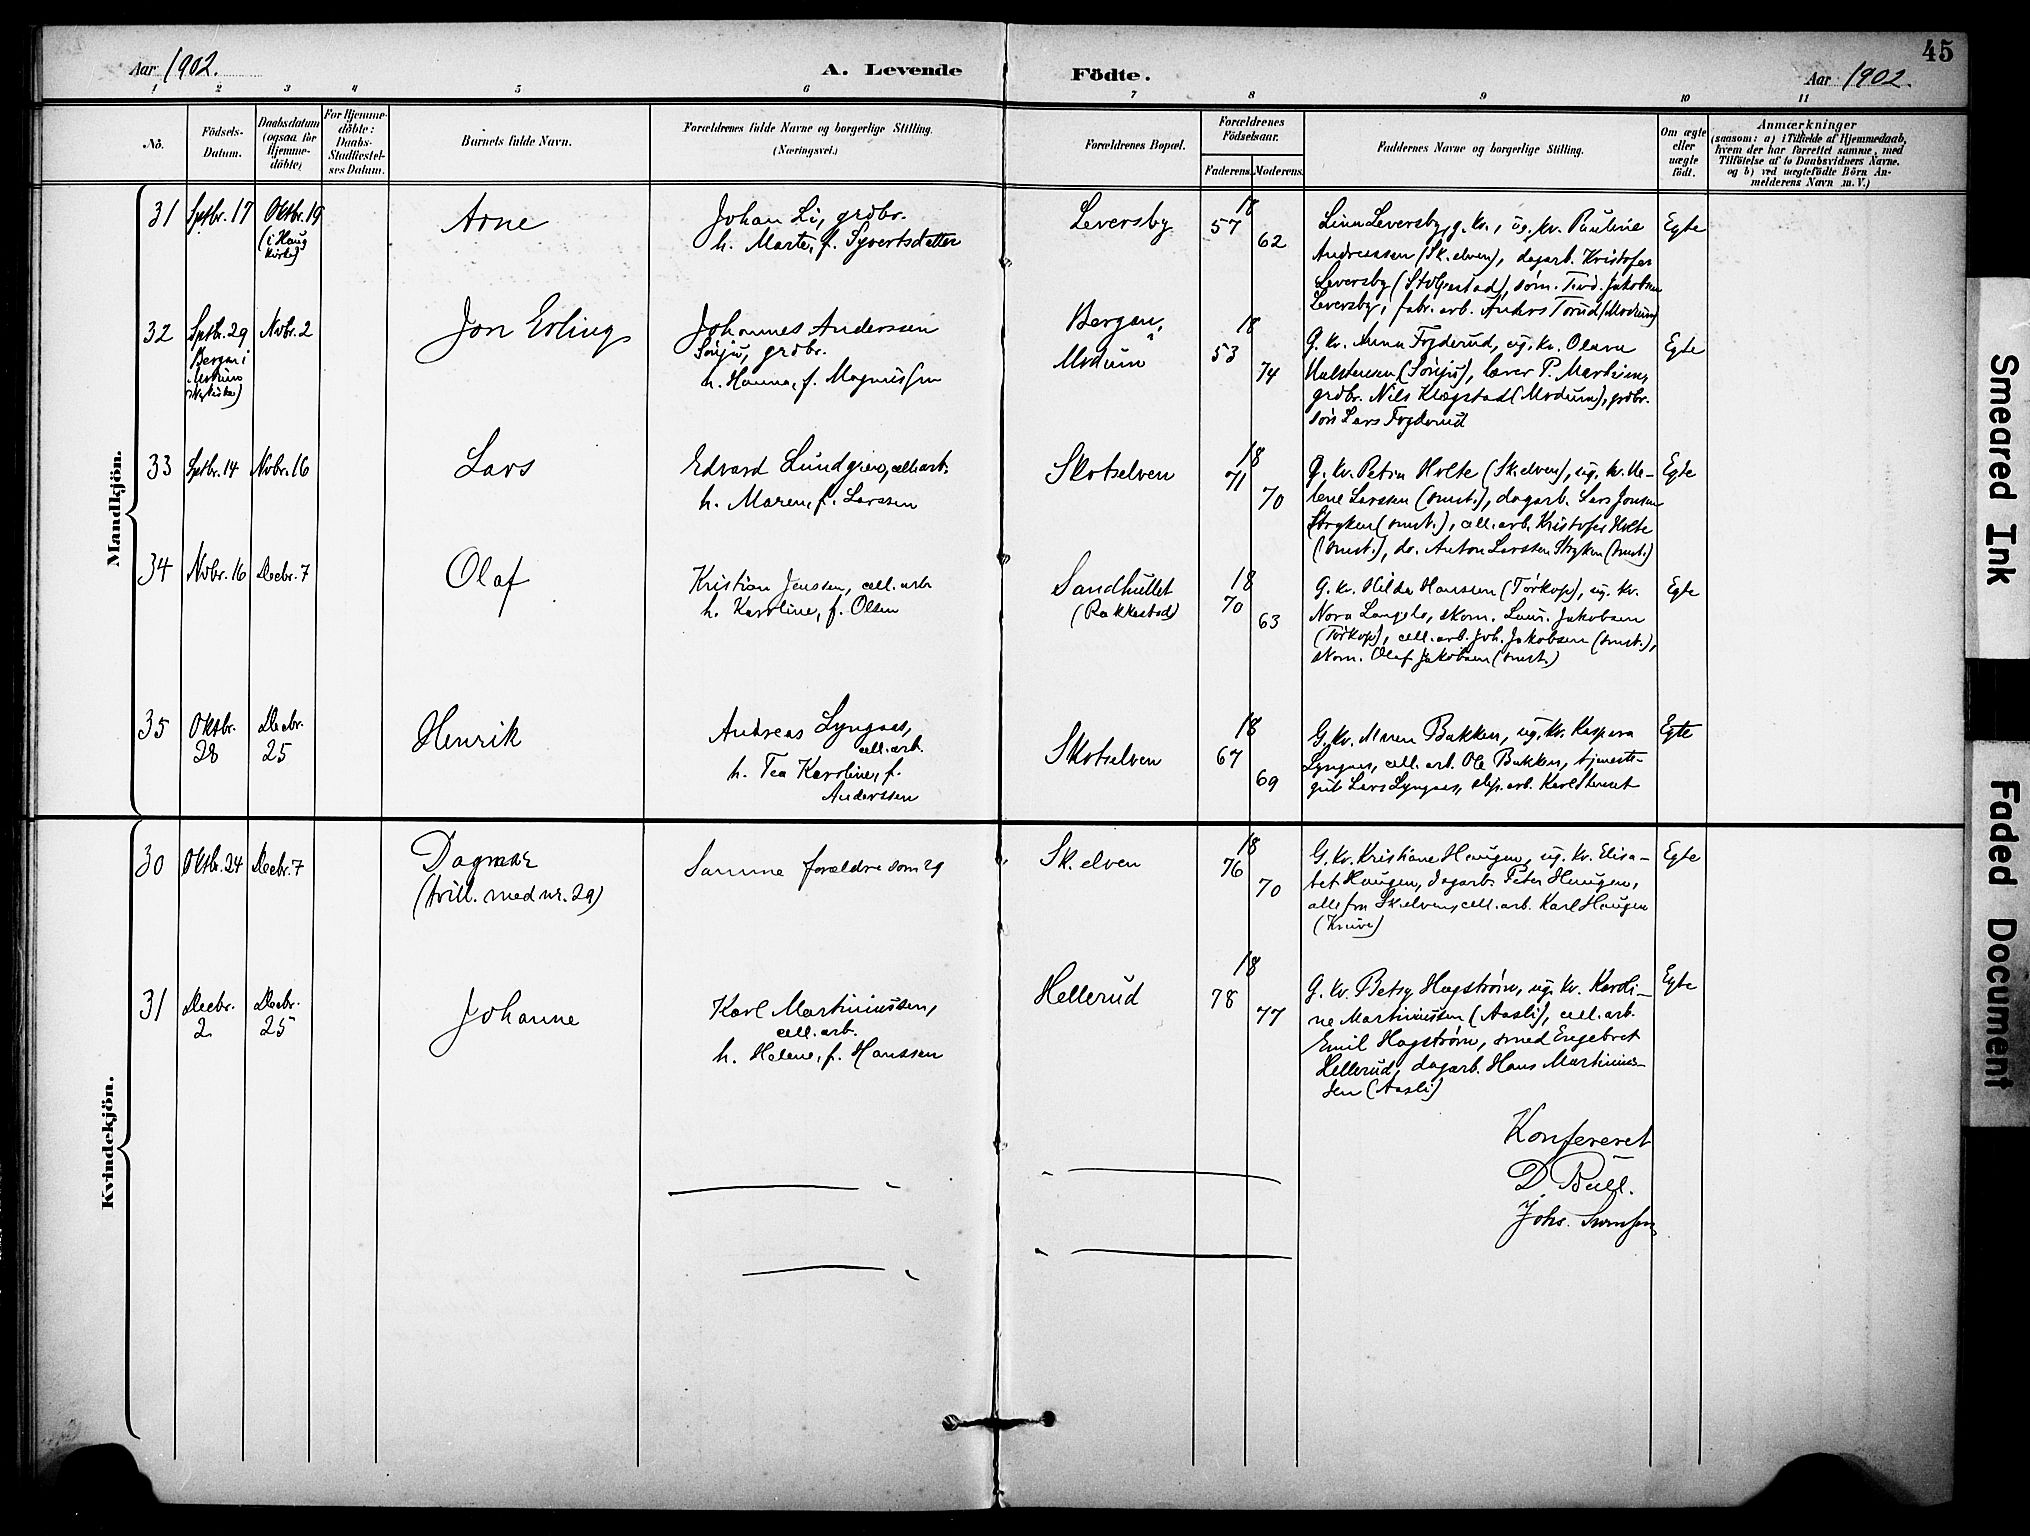 45
Aar 1902.
A. Levende Födte.
Aar 1902.
1 2 3 4 5 6 7 8 9 10 11
No.
Födsels-Datum.
Daabsdatum (ogsaa for Hjemme-döbte)
For Hjemme-döbte: Daabs-Stadfæstel-ses Datum.
Barnets fulde Navn.
Forældrenes fulde Navne og borgerlige Stilling.
(Næringsvei.)
Forældrenes Bopæl.
Forældrenes Födselsaar.
Faderens. Moderens.
Faddernes Navne og borgerlige Stilling.
Om ægte eller uægte födt.
Anmærkninger
(saasom: a) i Tilfælde af Hjemmedaab,
hvem der har forrettet samme, med
Tilföielse af to Daabsvidners Navne.
og b) ved uægtefödte Börn An-
melderens Navn m. V.)
Mandkjön.
31
Septbr. 17
Oktbr. 19
(i Haug
kirke)
Arne
Johan Li, grdbr.
h. Marte, f. Syvertsdatter
Leversby
18
57
62
Linn Leversby, g. kv., ug. kv. Pauline
Andreassen (Sk.elven), dagarb. Kristofer
Leversby (Stolpestad), søm. Teod. Jakobsen
Leversby, fabr. arb. Anders Torud (Modum)
Egte
32
Septbr. 29
Bergan i
Modum
Novbr. 2
Jon Erling
Johannes Andersen
Sønju, grdbr.
h. Hanna, f. Magnussen
Bergan,
Modum
18
53
74
G. kv. Anna Fogderud, ug. kv. Olava
Halstensen (Sønju), lærer P. Martinsen,
grdbr. Nils Klægstad (Modum), grdbr.
søn Lars Fogderud
Egte
33
Septbr. 14
Novbr. 16
Lars
Edvard Lundgren, cell.arb.
h. Maren, f. Larssen
Skotselven
18
71
70
G. kv. Petra Holte (Sk.elven), ug. kv. He-
lene Larssen (smst.), dagarb. Lars Jonsen
Stryken (smst.), cell. arb. Kristofer Holte
(smst.), do. Anton Larssen Stryken (smst.)
Egte
34
Novbr. 16
Decbr. 7
Olaf
Kristian Jenssen, cell. arb.
h. Karoline, f. Olsen
Sandhullet
(Rakkestad)
18
70
63
G. kv. Hilda Hanssen (Torkop), ug. kv.
Nora Langelo, skom. Laur. Jakobsen
(Torkop), cell. arb. Joh. Jakobsen (smst.),
skom. Olaf Jakobsen (smst.)
Egte
35
Oktbr.
28
Decbr.
25
Henrik
Andreas Lyngaas,
cell. arb.
h. Tea Karoline, f.
Anderssen
Skotselven
18
67
69
G. kv. Maren Bakken, ug. kv. Kaspara
Lyngaas, cell. arb. Ole Bakken, tjeneste-
gut Lars Lyngaas, slip. arb. Karl
Egte
Kvindekjön.
30
Oktbr. 24
Decbr. 7
Dagmar
(tvill. med nr. 29)
Samme forældre som 29
Sk.elven
18
76
70
G. kv. Kristiane Haugen, ug. kv. Elisa-
bet Haugen, dagarb. Peter Haugen,
alle fra Sk.elven, cell. arb. Karl Haugen
(Knive)
Egte
31
Decbr.
2
Decbr.
25
Johanne
Karl Martiniussen,
cell. arb.
h. Helene, f. Hanssen
Hellerud
18
78
77
G. kv. Betsy Hagstrøm, ug. kv. Karoli-
ne Martiniussen (Aasli), cell. arb.
Emil Hagstrøm, smed Engebret
Hellerud, dagarb. Hans Martinius-
sen (Aasli)
Egte
Konfereret
D. Bull.
Johs.
Smeared Ink
Faded Document